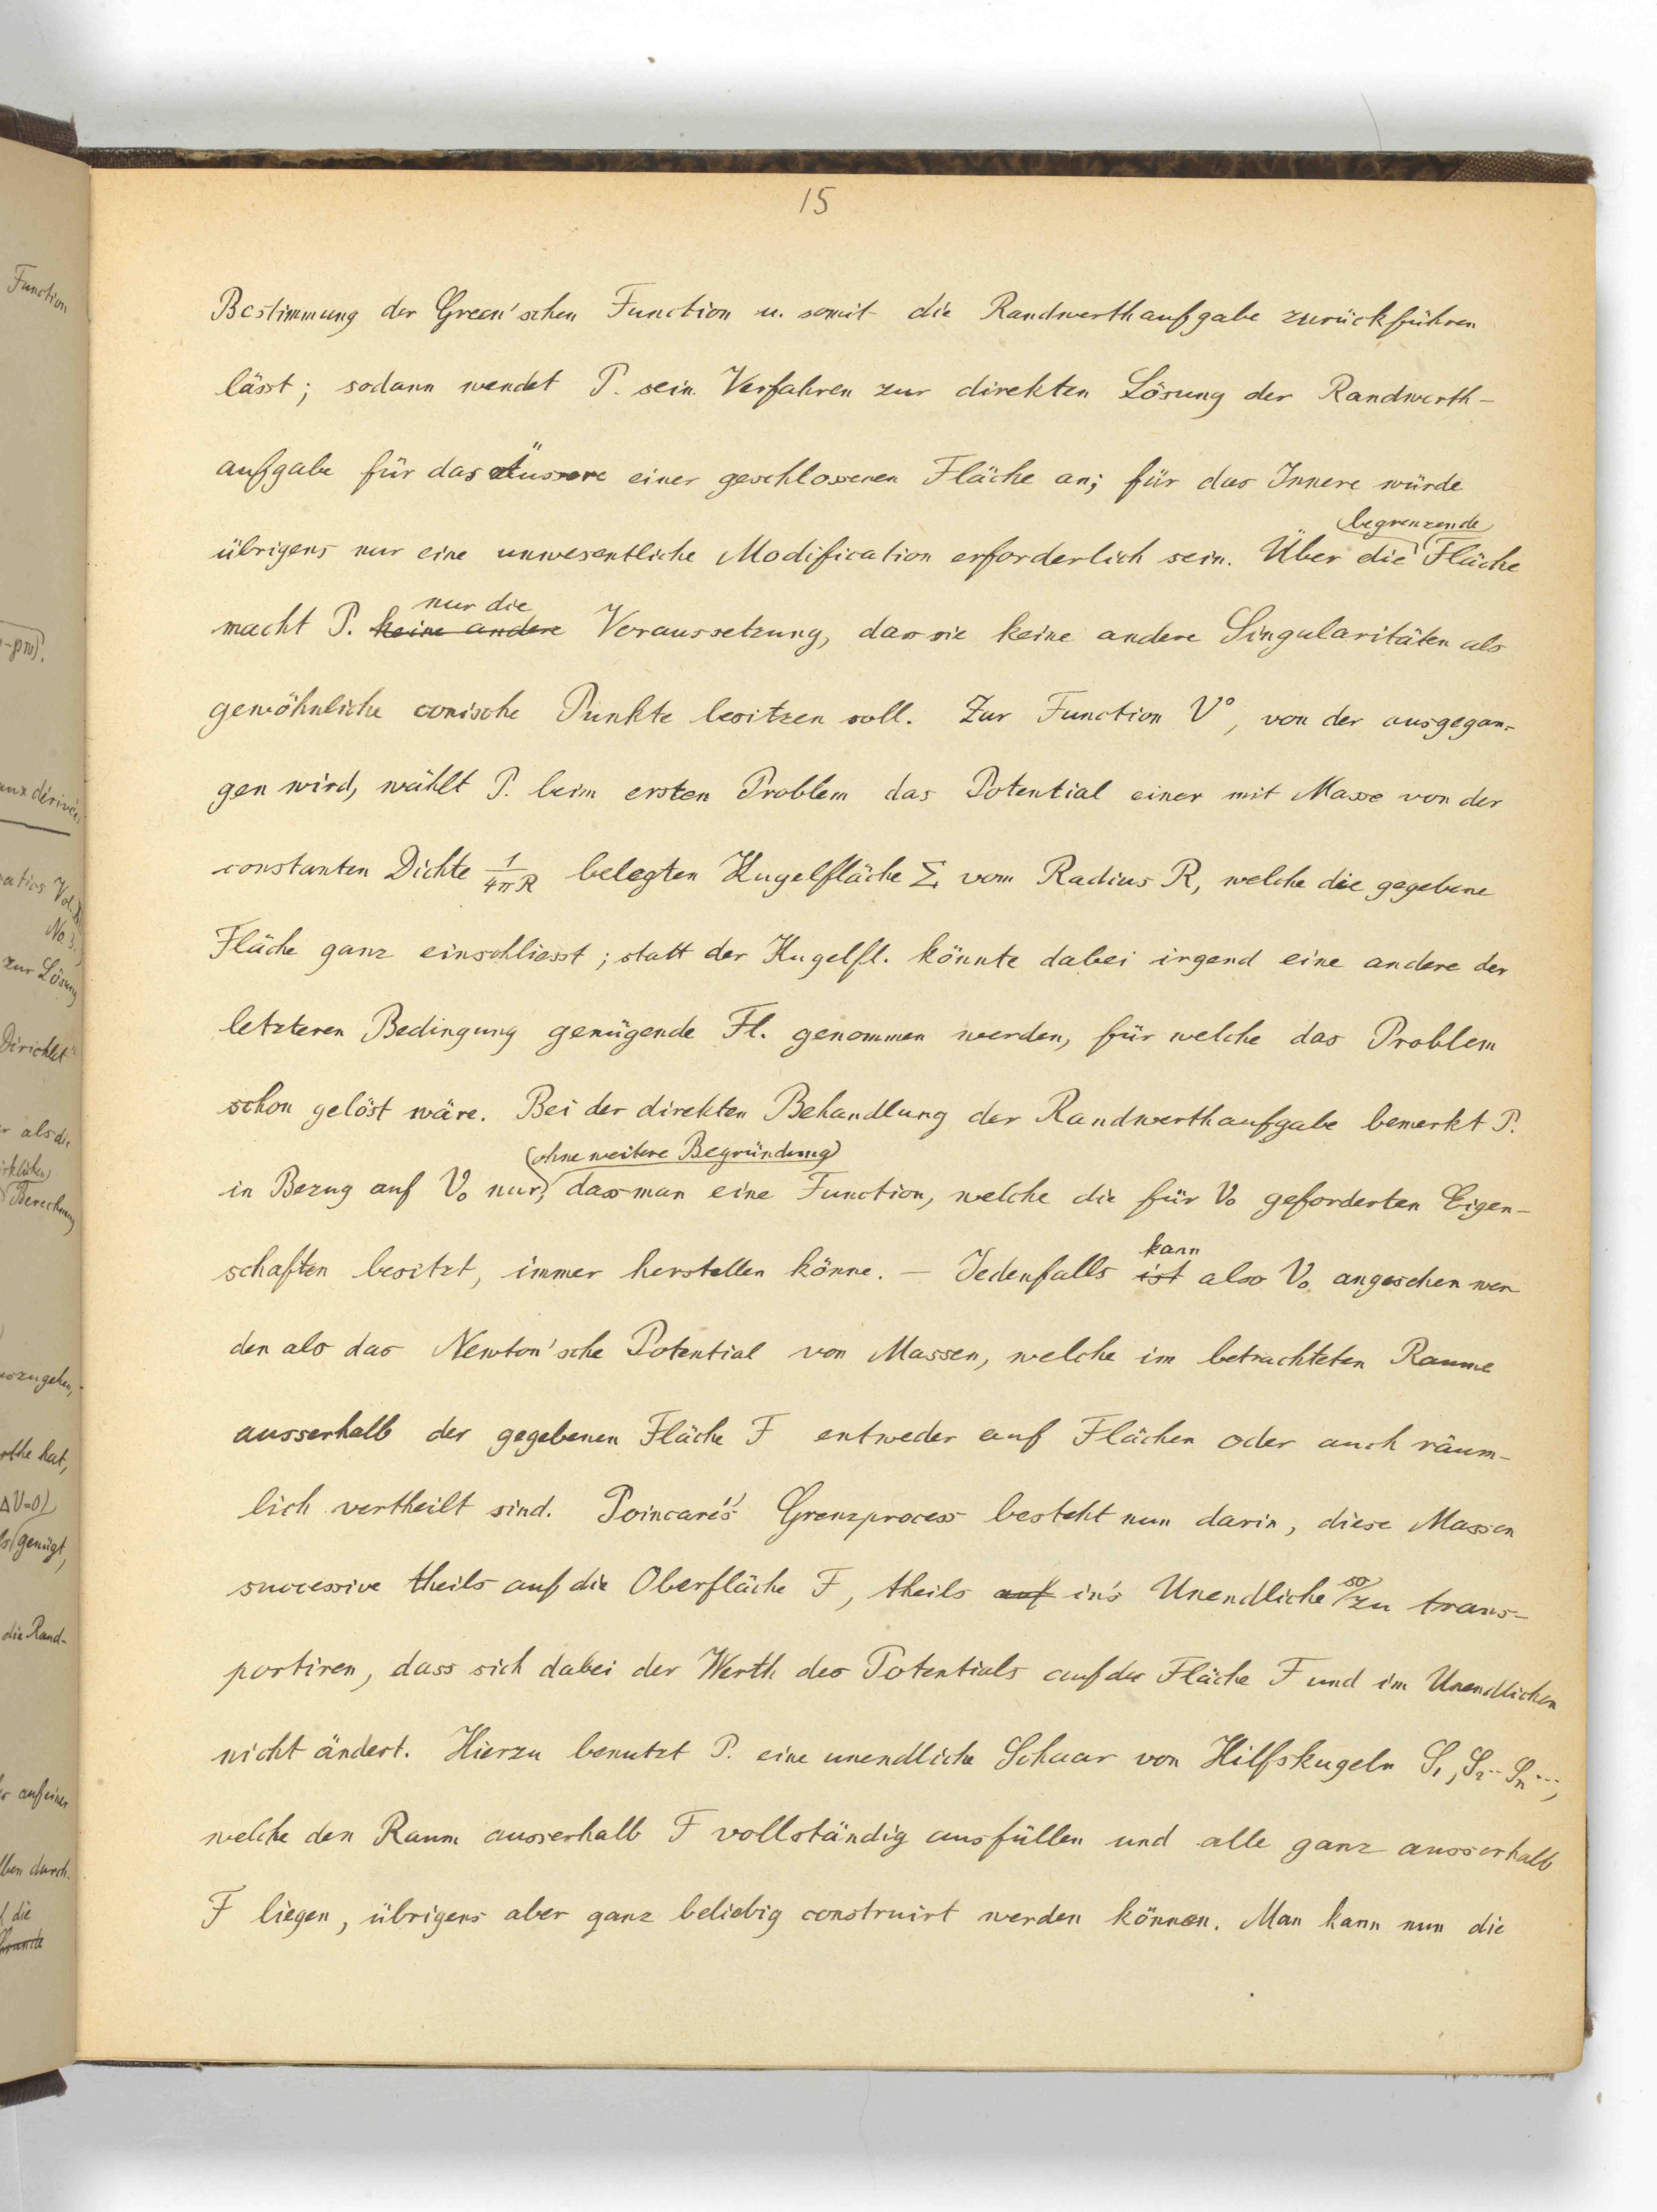 15
Bestimmung der Green'schen Function u. somit die Randwerthaufgabe zurückführen
lässt; sodann wendet P. sein Verfahren zur direkten Lösung der Randwerth-
aufgabe für das Äussere einer geschlossenen Fläche an; für das Innere würde
begrenzende
übrigens nur eine unwesentliche Modification erforderlich sein. Über die Fläche
nur die
macht P. keine andere Voraussetzung, dass sie keine andere Singularitäten als
gewöhnliche conische Punkte besitzen soll. Zur Function V°, von der ausgegan-
gen wird, wählt P. beim ersten Problem das Potential einer mit Masse von der
constanten Dichte 1/4πR belegten Kugelfläche Σ vom Radius R, welche die gegebene
Fläche ganz einschliesst; statt der Kugelfl. könnte dabei irgend eine andere der
letzteren Bedingung genügende Fl. genommen werden, für welche das Problem
schon gelöst wäre. Bei der direkten Behandlung der Randwerthaufgabe bemerkt P.
(ohne weitere Begründung)
in Bezug auf V₀ nur, dass man eine Function, welche die für V₀ geforderten Eigen-
kann
schaften besitzt, immer herstellen könne. – Jedenfalls ist also V₀ angesehen wer
den als das Newton'sche Potential von Massen, welche im betrachteten Raume
ausserhalb der gegebenen Fläche F entweder auf Flächen oder auch räum-
lich vertheilt sind. Poincaré's Grenzprocess besteht nun darin, diese Massen
so
successive theils auf die Oberfläche F, theils auf in's Unendliche zu trans-
portiren, dass sich dabei der Werth des Potentials auf der Fläche F und im Unendlichen
nicht ändert. Hierzu benutzt P. eine unendliche Schaar von Hilfskugeln S₁, S₂ ·· Sₙ ···,
welche den Raum ausserhalb F vollständig ausfüllen und alle ganz ausserhalb
F liegen, übrigens aber ganz beliebig construirt werden können. Man kann nun die